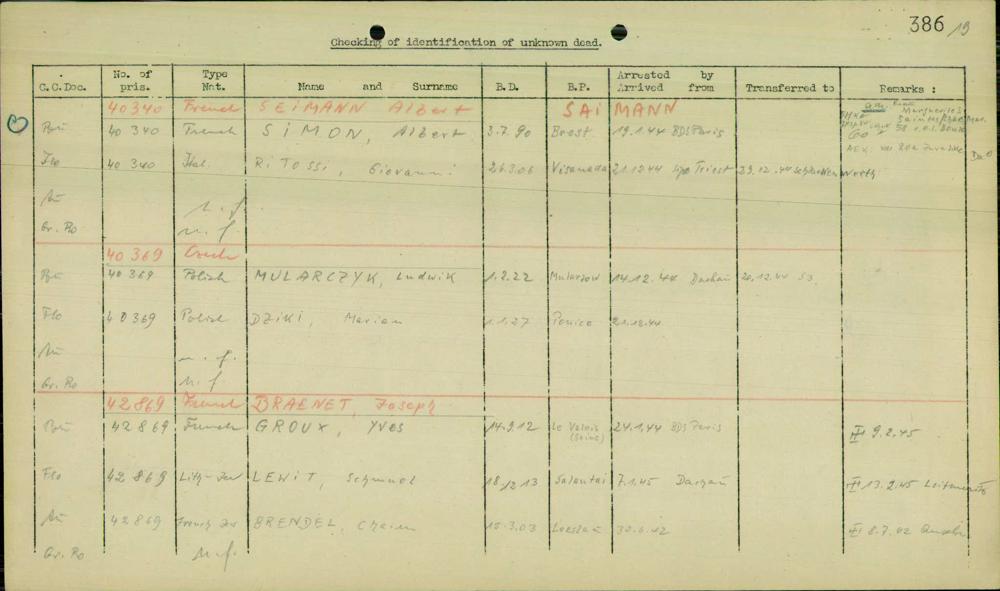 386 / 19
Checking of identification of unknown dead.
C.C.Doc. No. of pris. Type Nat. Name and Surname B.D. B.P. Arrested by Arrived from Transferred to Remarks :
40340 French SEIMANN Albert SAIMANN
Bu 40 340 French SIMON, Albert 3.7.90 Brest 19.1.44 BDS Paris
Flo 40 340 Ital. RITOSSI, Giovanni 26.3.06 Visanada 21.12.44 Sipo Triest
Au n. f.
Gr. Ro n. f.
40 369 Czech
Bu 40 369 Polish MULARCZYK, Ludwik 1.2.22 14.12.44 Dachau 20.12.44 S3
Flo 40369 Polish DZIKI, Marian 1.1.27 Ponice 21.12.44
Au n. f.
Gr. Ro n. f.
42869 French BRAENET, Joseph
Bu 42869 French GROUX, Yves 14.9.12 (Seine) 24.1.44 BDS Paris 9.2.45
Flo 42869 Lith-Jew LEWIT, Schmuel 18.12.13 Salantai 7.1.45 Dachau 13.2.45
Au 42869 French Jew BRENDEL, Chaim 15.3.03 30.6.42 8.7.42
Gr. Ro n. f.